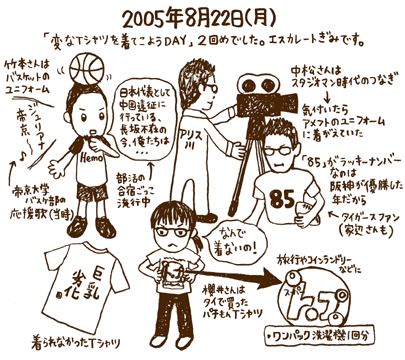 2005年8月22日(月)
「変なTシャツを着てこようDAY」2回めでした。エスカレートぎみです。
竹本さんは
バスケットの
ユニフォーム
ジュリアナ
帝京〜♪
Hemo
日本代表として
中国遠征に
行っている、
長坂不在の
今、俺たちは…
部活の
合宿ごっこ
流行中
帝京大学
バスケ部の
応援歌(当時)
アリス
川
中松さんは
スタジアン時代のつなぎ
気付いたら
アメフトのユニフォーム
に着がえていた
85
「85」がラッキーナンバー
なのは
阪神が優勝した
年だから
タイガースファン
(家辺さんも)
なんで
着ないの!
巨乳
劣化
着られなかったTシャツ
櫻井さんは
タイで買った
パチもんTシャツ
旅行やコインランドリー
などに
トップ
・ワンパック洗濯機1回分